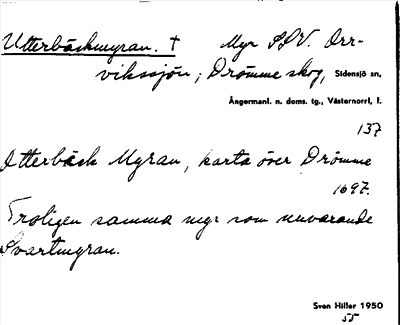 Utterbäckmyran. † Myr SSV. Orr-
vikssjön, Drömme skog, Sidensjö sn,
Ångermanl. n. doms. tg., Västernorrl. l.
137
Otterbäck Myran, karta över Drömme
1697.
Troligen samma myr som nuvarande
Svartmyran.
Sven Hiller 1950